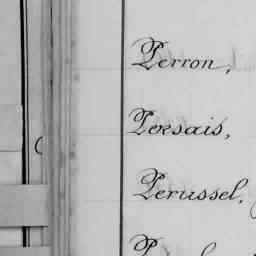 Perron,
Persais,
Perussel,